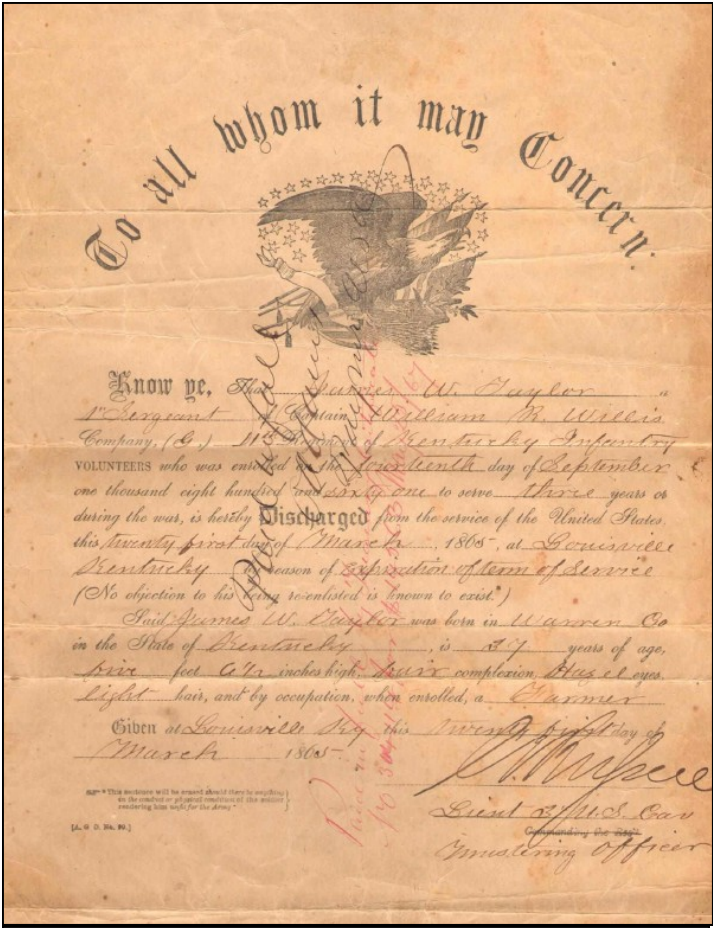 To all whom it may Concern:
Know ye, That James W. Taylor a
1st Sergeant of Captain William R. Willis
Company, (G.) 11th Regiment of Kentucky Infantry
VOLUNTEERS who was enrolled on the fourteenth day of September
one thousand eight hundred and sixty one to serve three years or
during the war, is hereby Discharged from the service of the United States,
this twenty first day of March, 1865, at Louisville
Kentucky by reason of expiration of term of Service
(No objection to his being re-enlisted is known to exist.*)
Said James W. Taylor was born in Warren Co
in the State of Kentucky, is 37 years of age,
five feet inches high, fair complexion, Hazel eyes,
light hair, and by occupation, when enrolled, a Farmer
Given at Louisville Ky this twenty first day of
March 1865
* This sentence will be erased should there be anything
in the conduct or physical condition of the soldier
rendering him unfit for the Army.
[A. G. O. No. 99.]
Lieut U.S. Cav
Commanding the Reg't.
Mustering Officer
Paid in full